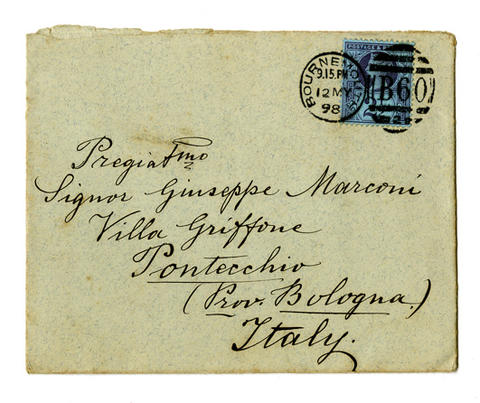 BOURNEMOUTH
9.15.PM
12 MY
98
B60
POSTAGE &
Pregiatmo
Signor Giuseppe Marconi
Villa Griffone
Pontecchio
(Prov. Bologna.)
Italy.